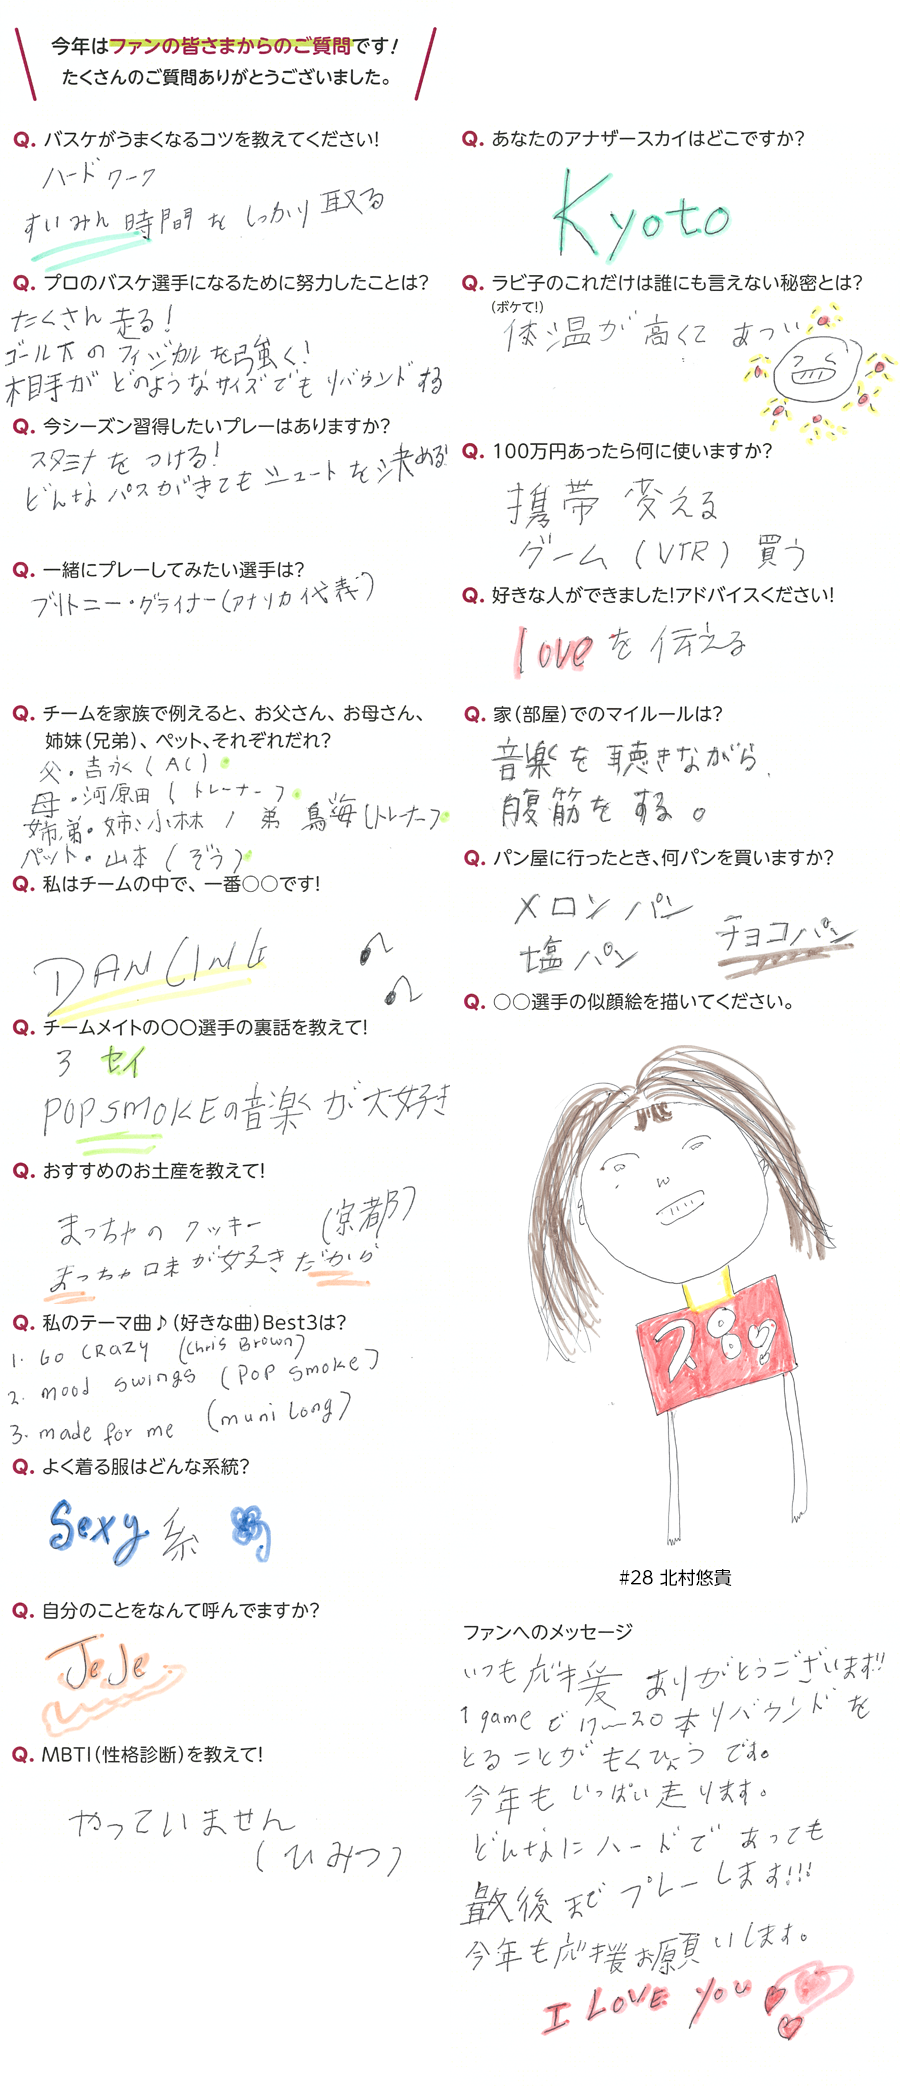 今年はファンの皆さまからのご質問です!
たくさんのご質問ありがとうございました。
Q. バスケがうまくなるコツを教えてください!
ハードワーク
すいみん時間をしっかり取る
Q. プロのバスケ選手になるために努力したことは?
たくさん走る!
ゴール下のフィジカルを強く!
相手がどのようなサイズでもリバウンドする
Q. 今シーズン習得したいプレーはありますか?
スタミナをつける!
どんなパスがきてもシュートを決める!
Q. 一緒にプレーしてみたい選手は?
ブリトニー・グライナー(アメリカ代表)
Q. チームを家族で例えると、お父さん、お母さん、
姉妹(兄弟)、ペット、それぞれだれ?
父・吉永(AC)
母・河原田(トレーナー)
姉、弟・姉:小林 / 弟 鳥海(トレーナー)
ペット・山本(ぞう)
Q. 私はチームの中で、一番○○です!
DANCING
Q. チームメイトの〇〇選手の裏話を教えて!
3 セイ
POP SMOKEの音楽が大好き
Q. おすすめのお土産を教えて!
まっちゃのクッキー (京都)
まっちゃ味が好きだから
Q. 私のテーマ曲♪(好きな曲)Best3は?
1. GO CRAZY (Chris Brown)
2. mood swings (POP smoke)
3. made for me (muni Long)
Q. よく着る服はどんな系統?
Sexy系
Q. 自分のことをなんて呼んでますか?
JeJe
Q. MBTI(性格診断)を教えて!
やっていません
(ひみつ)
Q. あなたのアナザースカイはどこですか?
Kyoto
Q. ラビ子のこれだけは誰にも言えない秘密とは?
(ボケて!)
体温が高くてあつい
Q. 100万円あったら何に使いますか?
携帯変える
ゲーム(VTR)買う
Q. 好きな人ができました!アドバイスください!
loveを伝える
Q. 家(部屋)でのマイルールは?
音楽を聴きながら、
腹筋をする。
Q. パン屋に行ったとき、何パンを買いますか?
メロンパン
塩パン チョコパン
Q. ○○選手の似顔絵を描いてください。
#28 北村悠貴
ファンへのメッセージ
いつも応援ありがとうございます!!
1gameで17〜20本リバウンドを
とることがもくひょうです。
今年もいっぱい走ります。
どんなにハードであっても
最後までプレーします!!!
今年も応援お願いします。
I LOVE YOU